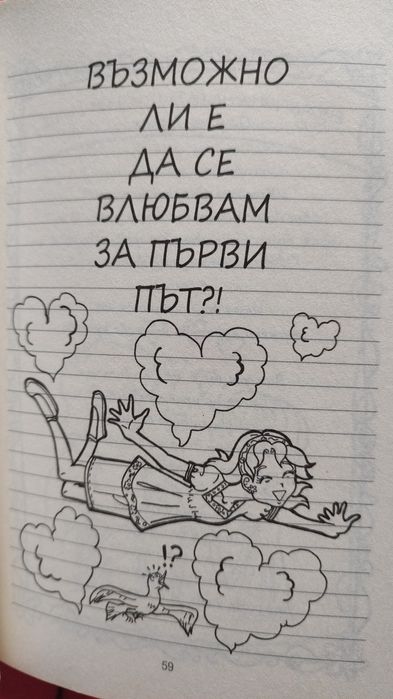 ВЪЗМОЖНО
ЛИ Е
ДА СЕ
ВЛЮБВАМ
ЗА ПЪРВИ
ПЪТ?!
!?
59